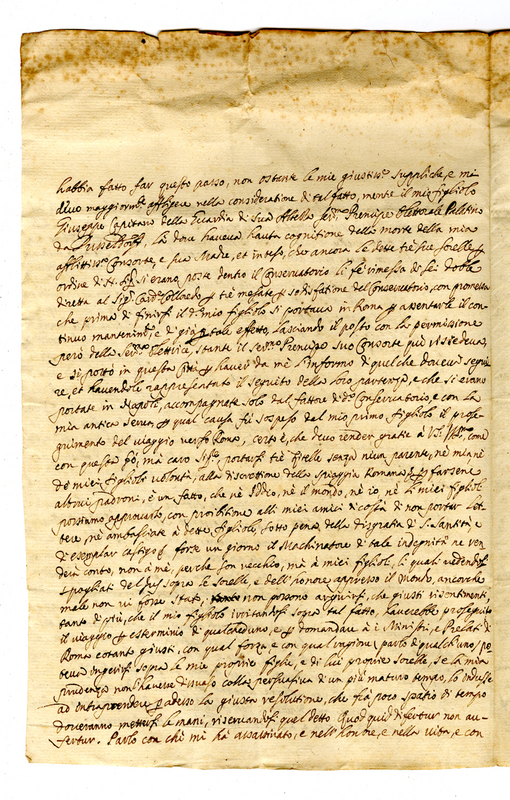 habbia fatto far questo passo, non ostante le mie giustiss.e suppliche, e mi
devo maggiorm.te affligere nella consideratione di tal fatto, mentre il mio figliolo
Giuseppe Capitano della Guardia di Sua Altezza Ser.ma Prencipe Elettorale Palatino
da Dusseldorf, là dove haveva hauta cognitione della morte della mia
afflittiss.a Consorte, e sua Madre, et inteso, che ancora le dette tre sue sorelle
ordine di si erano poste dentro il Conservatorio li fè rimessa di sei doble
diretta al Sig.r Card. Colloredo tre mesate sodisfatione del Conservatorio, con promessa
che prima di finirsi il d.o mio figliolo si portava in Roma assentarle il con-
tinuo mantenim.to, e di già tale effetto, lasciando il posto con la permissione
però della Ser.ma Elettrice, stante il Ser.mo Prencipe suo Consorte più risiedeva,
e si portò in questa haver da me l'informo di quel che doveva segui-
re, et havendoli rappresentato il seguito della loro partenza, e che si erano
portate in Napoli, accompagnate solo dal fattore di d.o Conservatorio, e con la
mia antica serva, qual causa fù sospeso dal mio primo figliolo il prose-
guimento del viaggio verso Roma, certo è, che devo render gratie à come
con questa mà caro portarsi trè Zitelle senza niun parente, nè mia nè
de miei figlioli volontà, alla discrettione della spiaggia Romana farsene
altrui padroni, è un fatto, che nè Iddio, nè il mondo, nè io, nè li miei figlioli
possiamo approvarlo, con proibitione alli miei amici di non portar let-
tere, nè ambasciate à dette figliole, sotto pena della disgratia di S. Santità e
di esemplar castigo, forse un giorno il Machinatore di tale indegnità ne ren-
derà conto, non à mè, perche son vecchio, mà à miei figlioli, li quali vedendosi
spogliati del jus sopra le sorelle, e dell'honore appresso il Mondo, ancorche
male non vi fosse stato, non possono arguirsi, che giusti risentimenti,
tanto di più, che il mio figliolo irritandosi sopra tal fatto, haverebbe proseguito
il viaggio esterminio di qualcheduno, e domandar à i Ministri, e Prelati di
Roma cotanto giusti, con qual forza, e con qual ragione (parlo di qualch'uno) po-
teva ingerirsi sopra le mie proprie figlie, e di lui proprie sorelle, se la mia
prudenza non l'havesse dissuaso colla persuasiva di un più maturo tempo, lo indusse
ad intraprender adesso la giusta resolutione, che frà poco spatio di tempo
doveranno mettersi le mani, riserandosi quel detto Quod quid differtur non au-
fertur. Parlo con chi mi hà assassinato, e nell'honore, e nella vita, e con